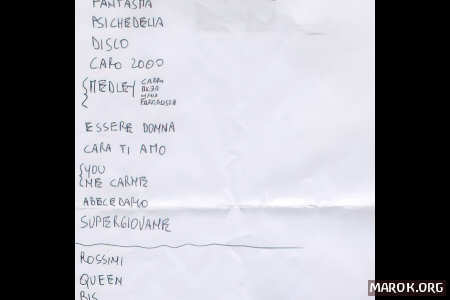 FANTASMA
PSICHEDELIA
DISCO
CARO 2000
{MEDLEY
ESSERE DONNA
CARA TI AMO
{YOU
ME CARME
ABECEDARIO
SUPERGIOVANE
ROSSINI
QUEEN
BIS
MAROK.ORG